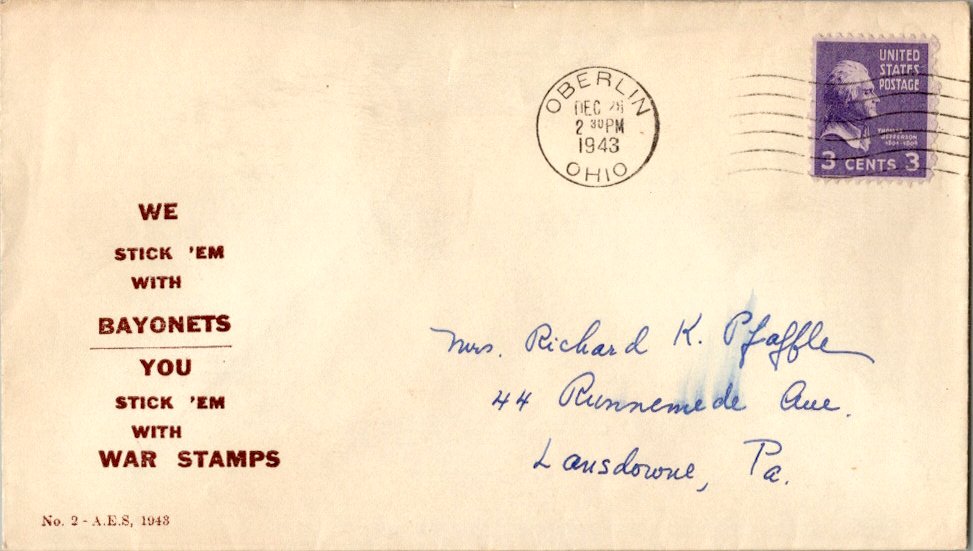 OBERLIN
DEC 28
2 30 PM
1943
OHIO
UNITED
STATES
POSTAGE
THOMAS
JEFFERSON
1801-1809
3 CENTS 3
WE
STICK 'EM
WITH
BAYONETS
YOU
STICK 'EM
WITH
WAR STAMPS
Mrs. Richard K. Pfaffle
44 Runnemede Ave.
Lansdowne, Pa.
No. 2 - A.E.S, 1943